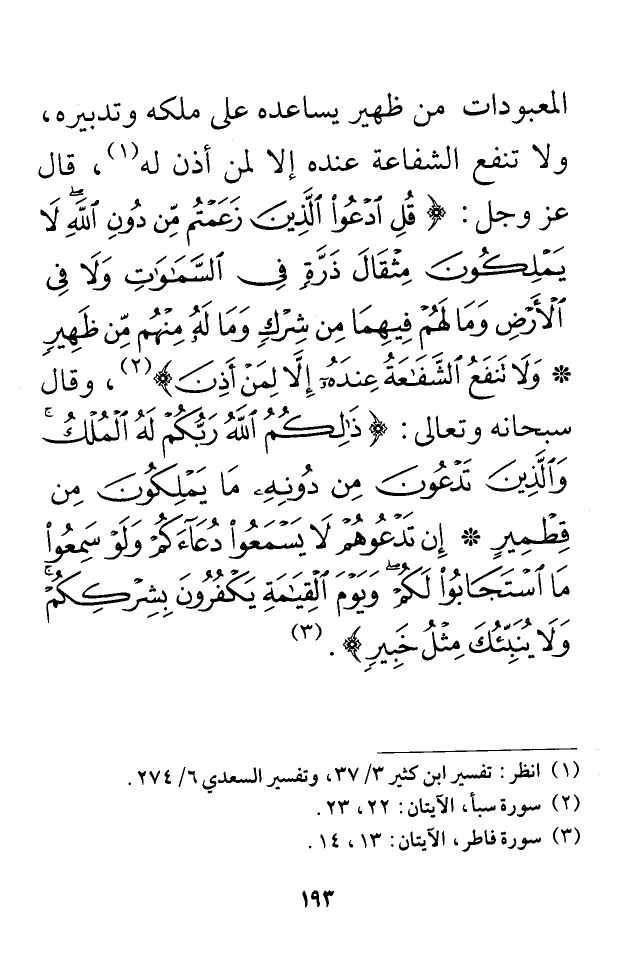 المعبودات من ظهير يساعده على ملكه وتدبيره،
ولا تنفع الشفاعة عنده إلا لمن أذن له(١)، قال
عز وجل: ﴿قُلِ ٱدْعُوا۟ ٱلَّذِينَ زَعَمْتُم مِّن دُونِ ٱللَّهِ ۖ لَا
يَمْلِكُونَ مِثْقَالَ ذَرَّةٍ فِى ٱلسَّمَٰوَٰتِ وَلَا فِى
ٱلْأَرْضِ وَمَا لَهُمْ فِيهِمَا مِن شِرْكٍ وَمَا لَهُۥ مِنْهُم مِّن ظَهِيرٍ
* وَلَا تَنفَعُ ٱلشَّفَٰعَةُ عِندَهُۥٓ إِلَّا لِمَنْ أَذِنَ﴾(٢)، وقال
سبحانه وتعالى: ﴿ذَٰلِكُمُ ٱللَّهُ رَبُّكُمْ لَهُ ٱلْمُلْكُ ۚ
وَٱلَّذِينَ تَدْعُونَ مِن دُونِهِۦ مَا يَمْلِكُونَ مِن
قِطْمِيرٍ * إِن تَدْعُوهُمْ لَا يَسْمَعُوا۟ دُعَآءَكُمْ وَلَوْ سَمِعُوا۟
مَا ٱسْتَجَابُوا۟ لَكُمْ ۖ وَيَوْمَ ٱلْقِيَٰمَةِ يَكْفُرُونَ بِشِرْكِكُمْ ۚ
وَلَا يُنَبِّئُكَ مِثْلُ خَبِيرٍ﴾.(٣)
(١) انظر: تفسير ابن كثير ٣/ ٣٧، وتفسير السعدي ٦/ ٢٧٤.
(٢) سورة سبأ، الآيتان: ٢٢، ٢٣.
(٣) سورة فاطر، الآيتان: ١٣، ١٤.
١٩٣